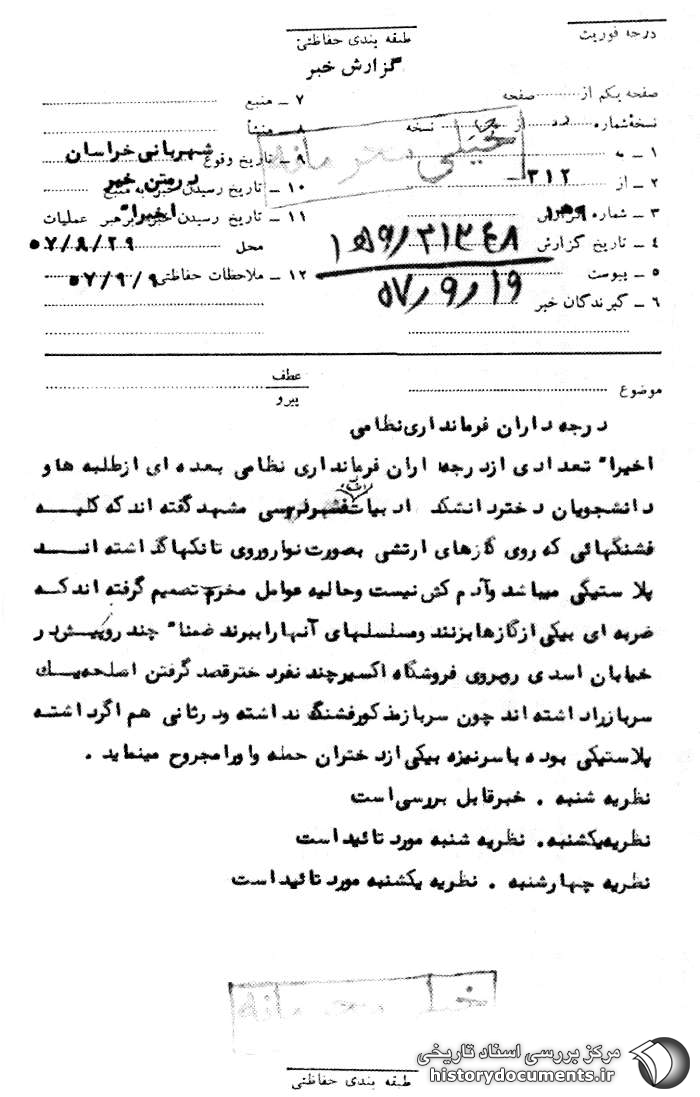 درجه فوریت
طبقه بندی حفاظتی
گزارش خبر
صفحه یکم از صفحه
نسخه شماره از نسخه
۱ ــ به
۲ ــ از ۳۱۲
۳ ــ شماره گزارش
۴ ــ تاریخ گزارش
۵ ــ پیوست
۶ ــ گیرندگان خبر
۱۵۹/۲۱۳۴۸
۵۷/۹/۱۹
۷ ــ منبع
۸ ــ منشأ شهربانی خراسان
۹ ــ تاریخ وقوع در متن خبر
۱۰ ــ تاریخ رسیدن خبر به منبع اخیرا"
۱۱ ــ تاریخ رسیدن خبر به رهبر عملیات
محل ۵۷/۸/۲۹
۱۲ ــ ملاحظات حفاظتی ۵۷/۹/۹
خیلی محرمانه
موضوع
عطف
پیرو
درجه داران فرمانداری نظامی
اخیرا" تعدادی از درجه داران فرمانداری نظامی بعده ای از طلبه ها و
دانشجویان دختر دانشکده ادبیات مشهد گفته اند که کلیه
فشنگهائی که روی گازهای ارتشی بصورت نوار و روی تانکها گذاشته اند
پلاستیکی میباشد و آدم کش نیست و حالیه عوامل مخرب تصمیم گرفته اند که
ضربه ای بیکی از گازها بزنند و مسلسلهای آنها را ببرند ضمنا" چند روز پیش در
خیابان اسدی روبروی فروشگاه اکسیر چند نفر دختر قصد گرفتن اسلحه یک
سرباز را داشته اند چون سرباز مذکور فشنگ نداشته و در ثانی هم اگر داشته
پلاستیکی بوده با سرنیزه بیکی از دختران حمله و او را مجروح مینماید .
نظریه شنبه . خبر قابل بررسی است
نظریه یکشنبه . نظریه شنبه مورد تائید است
نظریه چهارشنبه . نظریه یکشنبه مورد تائید است
خیلی محرمانه
طبقه بندی حفاظتی
مرکز بررسی اسناد تاریخی
historydocuments.ir